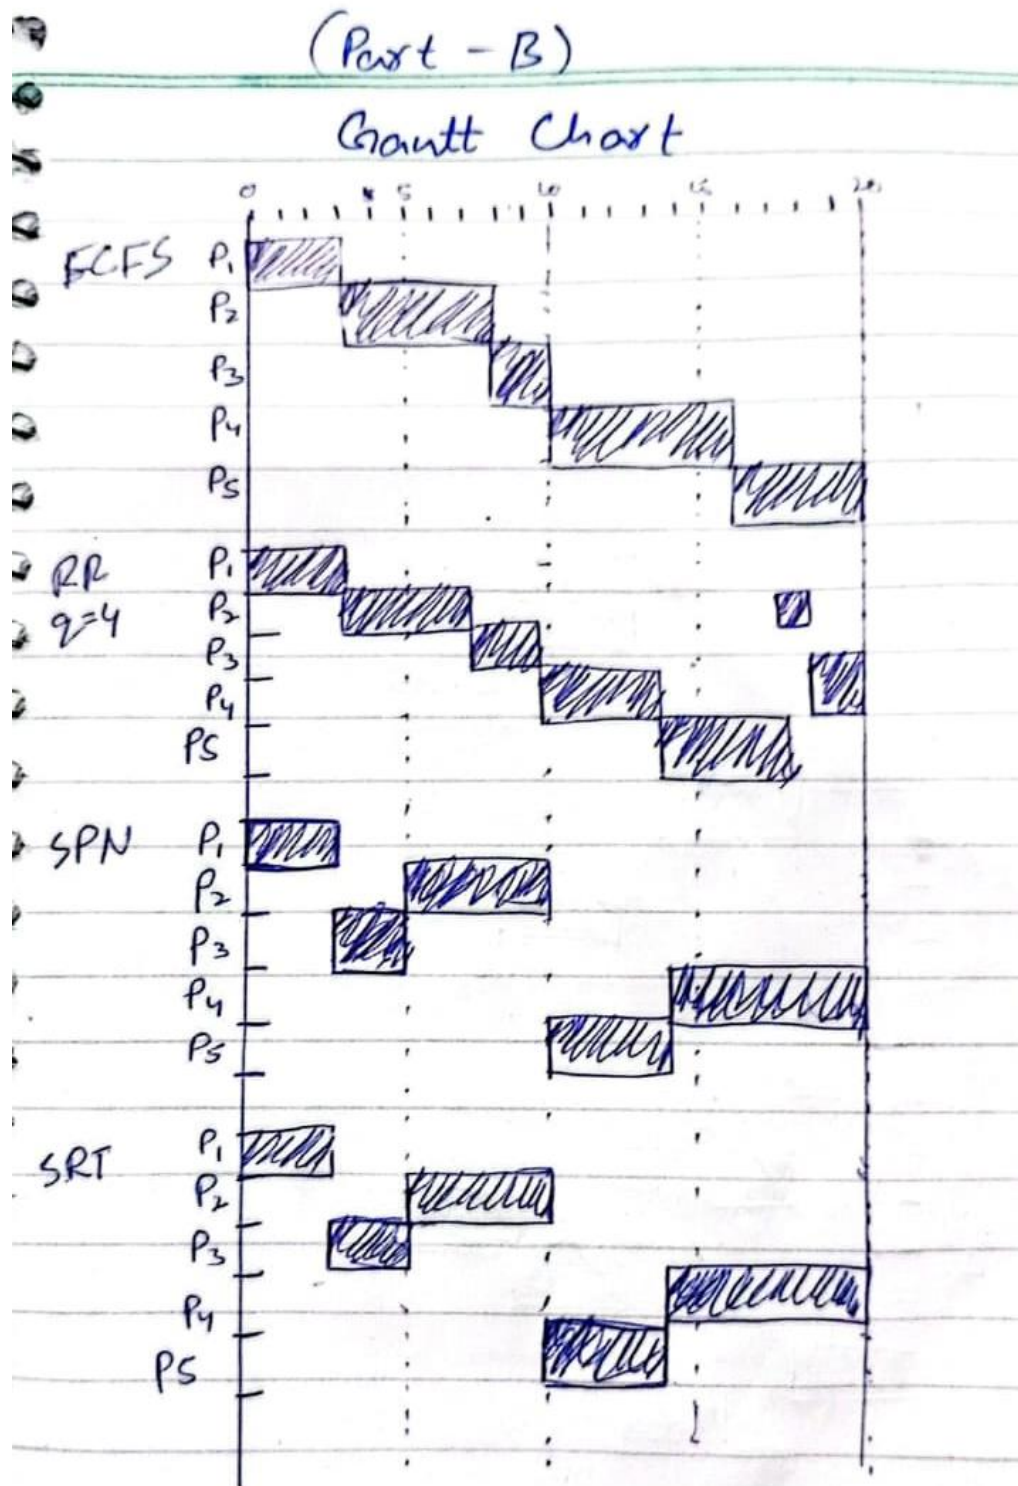 (Part - B)
Gantt Chart
0 5 10 15 20
FCFS P1
P2
P3
P4
P5
RR P1
q=4 P2
P3
P4
P5
SPN P1
P2
P3
P4
P5
SRT P1
P2
P3
P4
P5